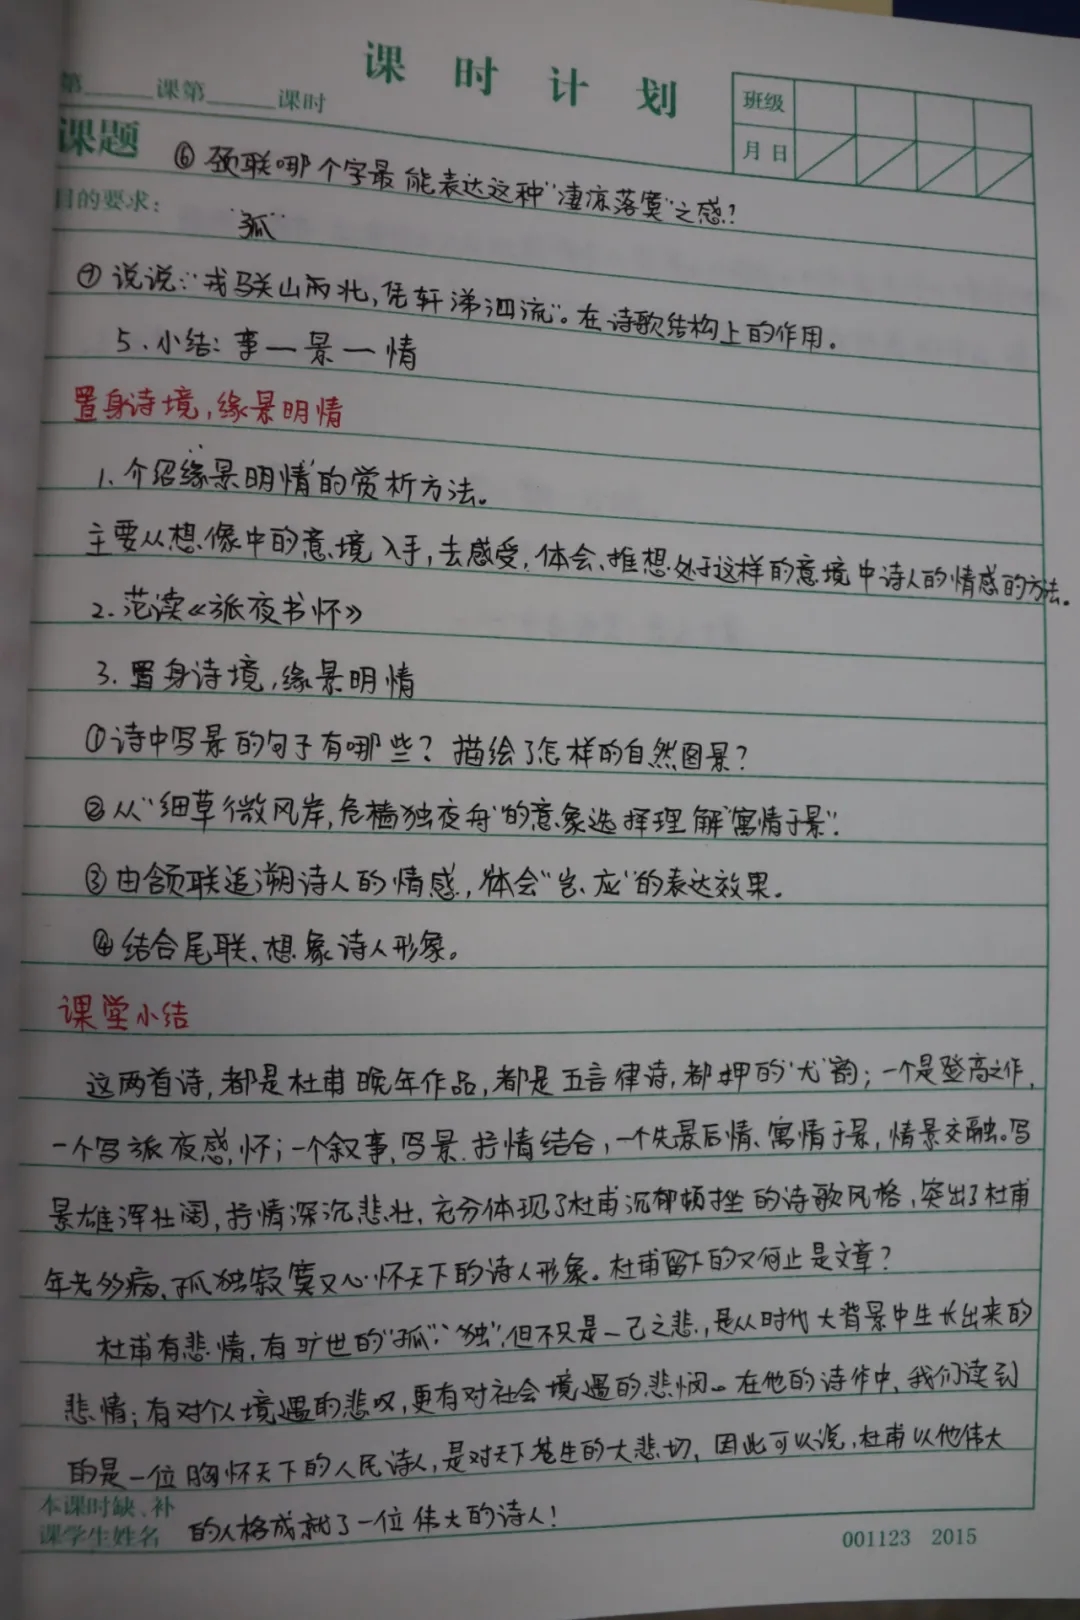 课时计划
第____课第____课时
班级
月日
课题
⑥颈联哪个字最能表达这种"凄凉落寞"之感?
目的要求:
"孤"
⑦说说:"戎马关山南北,凭轩涕泗流"。在诗歌结构上的作用。
5、小结:事一景一情
置身诗境,缘景明情
1、介绍缘景明情的赏析方法。
主要从想像中的意境入手,去感受,体会、推想处于这样的意境中诗人的情感的方法。
2.范读《旅夜书怀》
3.置身诗境,缘景明情
①诗中写景的句子有哪些?描绘了怎样的自然图景?
②从"细草微风岸,危樯独夜舟"的意象选择理解"寓情于景".
③由颔联追溯诗人的情感,体会"岂、应"的表达效果。
④结合尾联、想象诗人形象。
课堂小结
这两首诗,都是杜甫晚年作品,都是五言律诗,都押的"尤"韵;一个是登高之作,
一个写旅夜感怀;一个叙事、写景、抒情结合,一个先景后情、寓情于景,情景交融。写
景雄浑壮阔,抒情深沉悲壮,充分体现了杜甫沉郁顿挫的诗歌风格,突出了杜甫
年老多病、孤独寂寞又心怀天下的诗人形象。杜甫留下的又何止是文章?
杜甫有悲情,有旷世的"孤"、"独",但不只是一己之悲,是从时代大背景中生长出来的
悲情;有对个人境遇的悲叹,更有对社会境遇的悲悯。在他的诗作中,我们读到
的是一位胸怀天下的人民诗人,是对天下苍生的大悲切,因此可以说,杜甫以他伟大
本课时缺、补
课学生姓名
的人格成就了一位伟大的诗人!
001123 2015